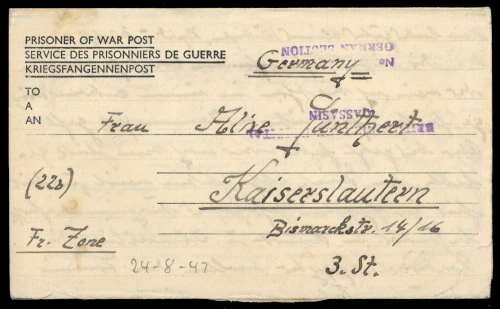 PRISONER OF WAR POST
SERVICE DES PRISONNIERS DE GUERRE
KRIEGSFANGENNENPOST
No
GERMAN SECTION
Germany
TO
A
AN
QASSASIN
Frau Alise
(22b)
Kaiserslautern
Bismarckstr. 14/16
Fr. Zone
3. St.
24-8-47